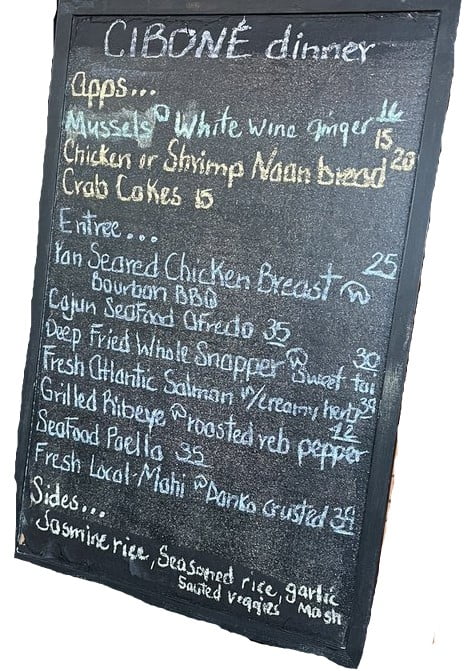 CIBONÉ dinner
Apps...
Mussels w White wine ginger 16
Chicken or Shrimp Naan bread 15 20
Crab Cakes 15
Entree...
Pan Seared Chicken Breast w 25
Bourbon BBQ
Cajun Seafood Alfredo 35
Deep Fried Whole Snapper w Sweet tai 30
Fresh Atlantic Salman w/creamy herb 39
Grilled Ribeye w roasted reb pepper 42
Seafood Paella 35
Fresh Local-Mahi w Panko crusted 39
Sides...
Jasmine rice, Seasoned rice, garlic
Sauted veggies Mash